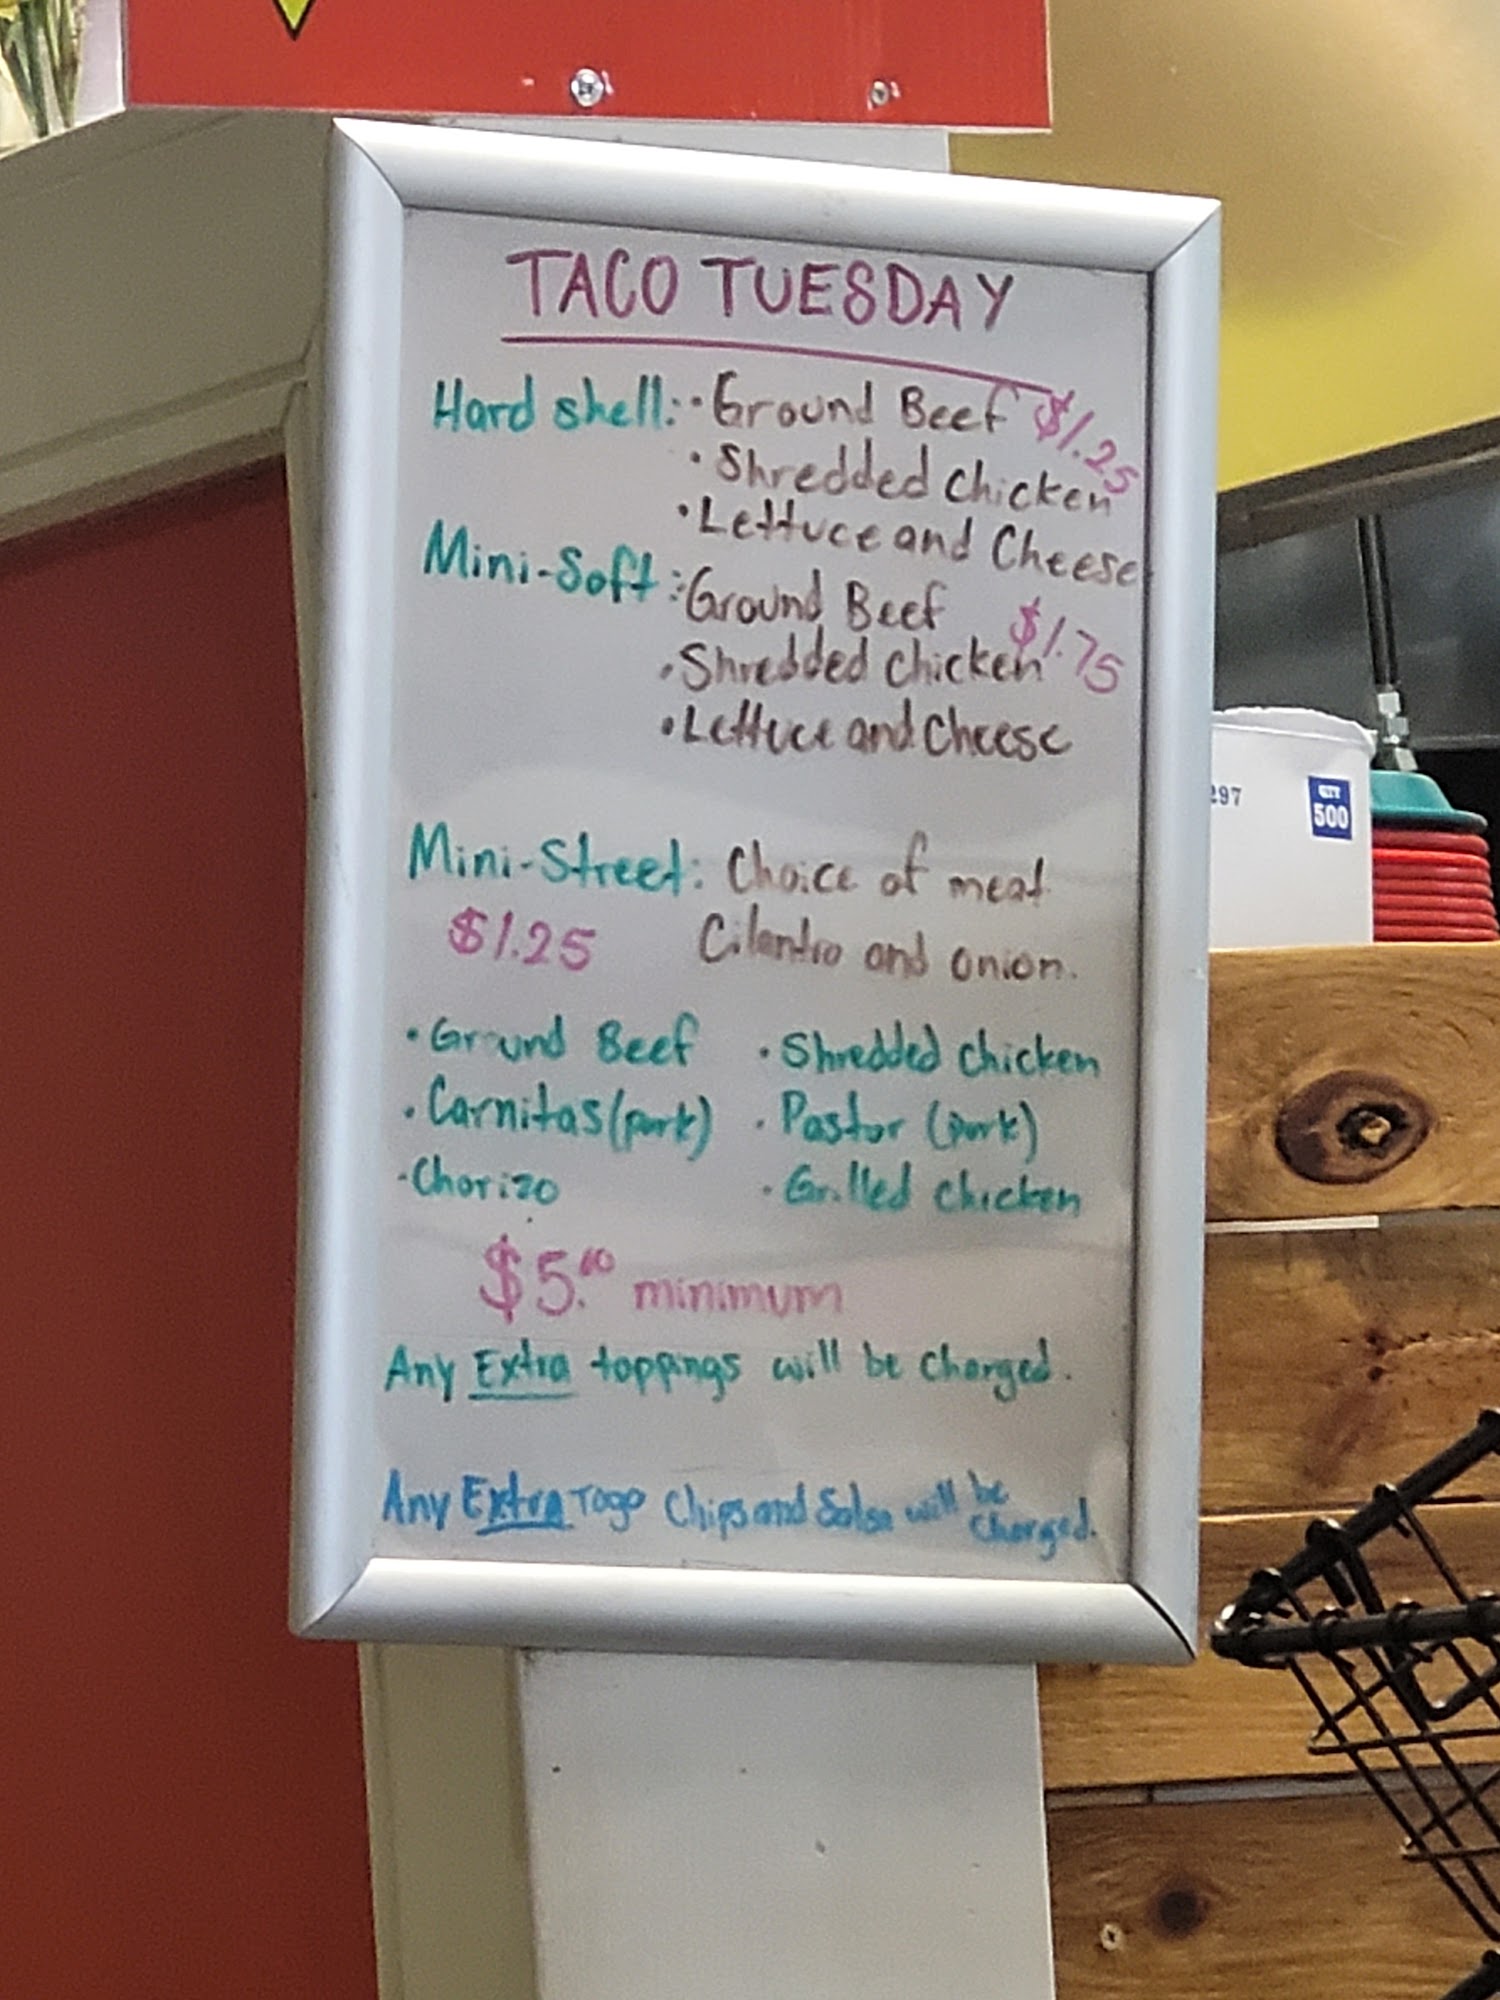 TACO TUESDAY
Hard shell: • Ground Beef $1.25
• Shredded chicken
• Lettuce and Cheese
Mini-Soft: • Ground Beef $1.75
• Shredded chicken
• Lettuce and Cheese
Mini-Street: Choice of meat
$1.25 Cilantro and onion.
• Ground Beef • Shredded chicken
• Carnitas (pork) • Pastor (pork)
• Chorizo • Grilled chicken
$5.00 minimum
Any Extra toppings will be charged.
Any Extra Togo Chips and Salsa will be charged.
297
QTY
500